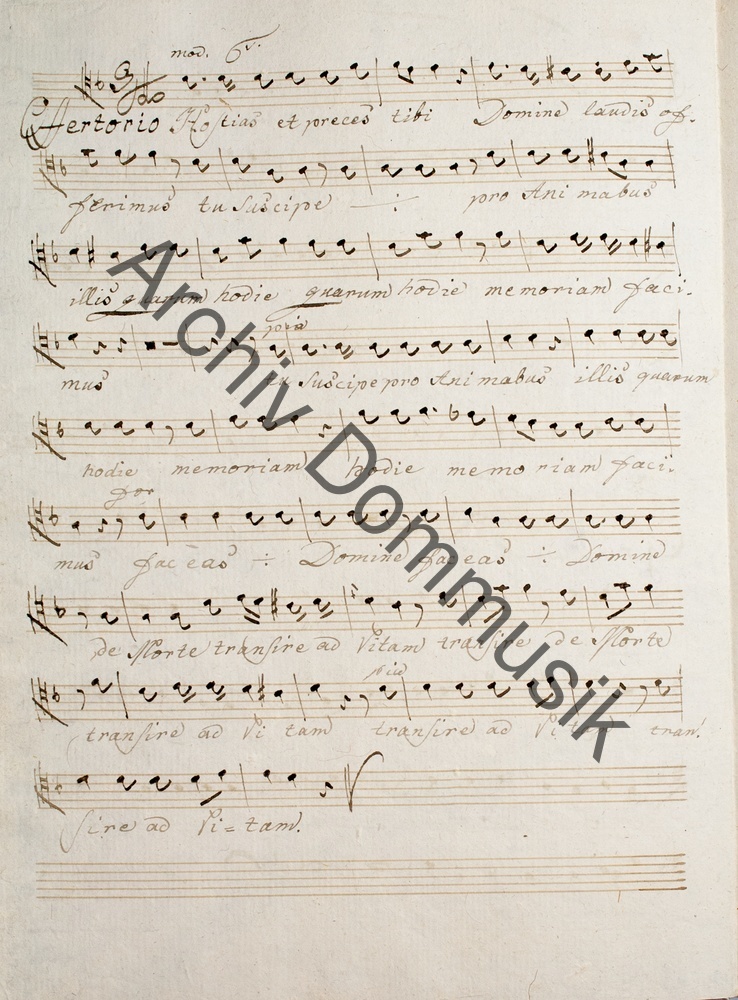 mod.
Offertorio Hostias et preces tibi Domine laudis of-
ferimus tu suscipe ÷ pro Animabus
illis quarum hodie quarum hodie memoriam faci-
pia
mus tu suscipe pro Animabus illis quarum
hodie memoriam hodie memoriam faci-
for
mus fac eas ÷ Domine fac eas ÷ Domine
de Morte transire ad Vitam transire de Morte
pia
transire ad Vi tam transire ad Vi tam tran-
sire ad Vi=tam.
Archiv Dommusik